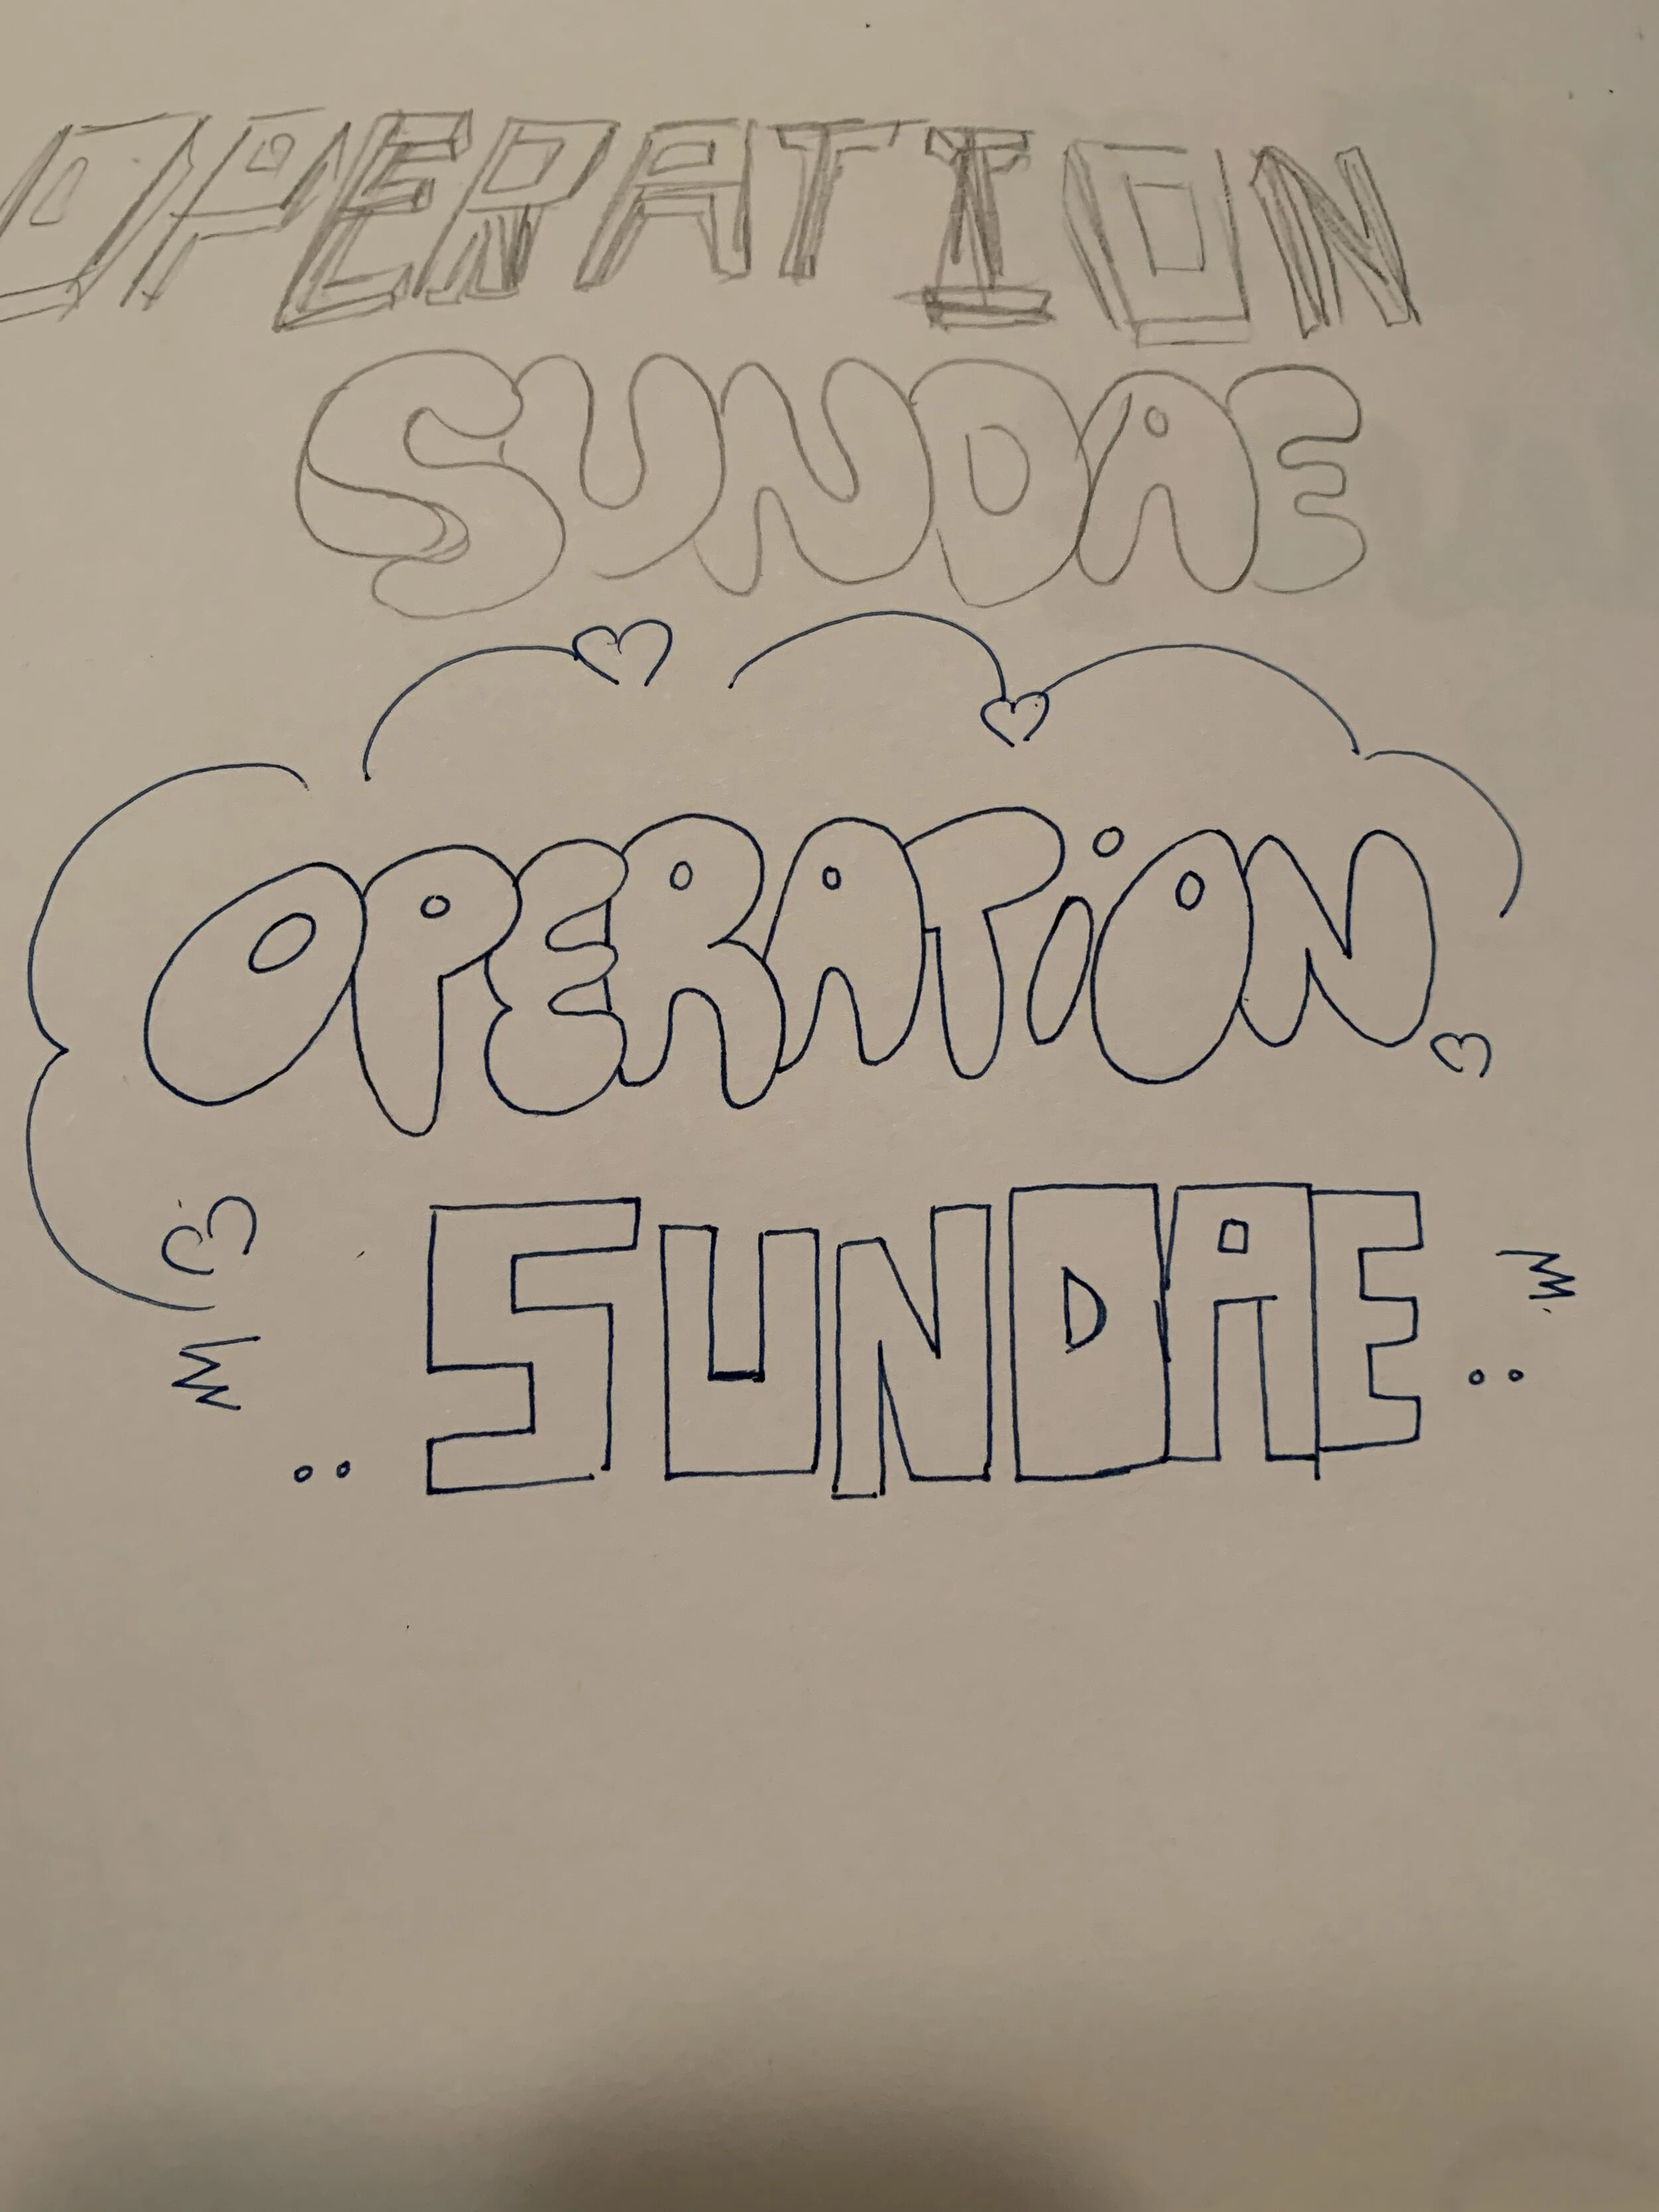 OPERATION
SUNDAE
OPERATiON
SUNDAE